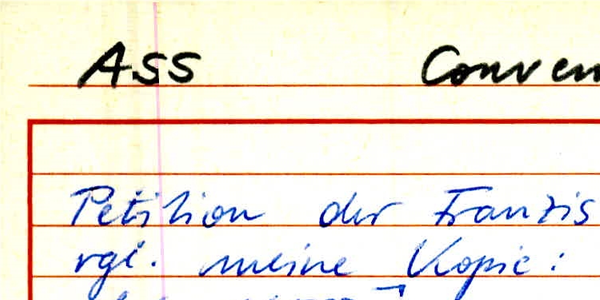 ASS Conven
Petition der Franzis
vgl. meine Kopie: